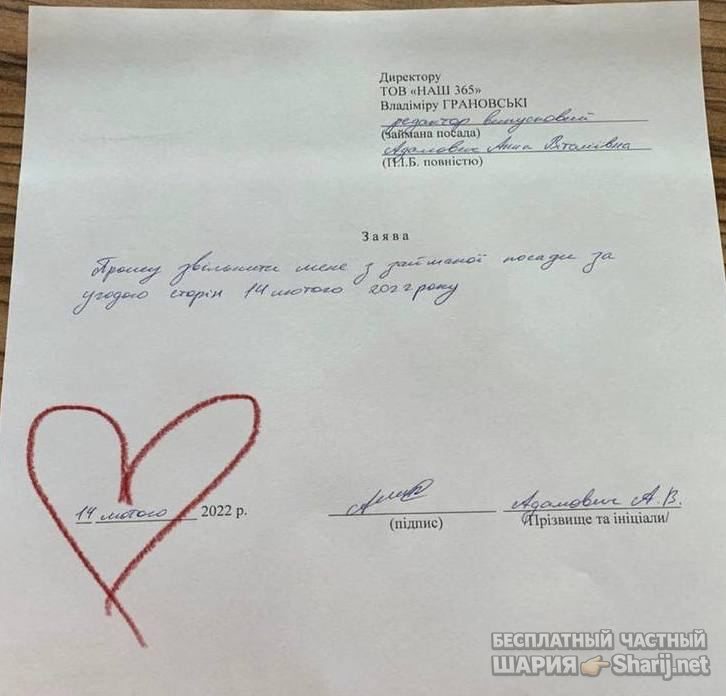 Директору
ТОВ «НАШ 365»
Владіміру ГРАНОВСЬКІ
редактор випусковий
(займана посада)
Адамович Анна Віталіївна
(П.І.Б. повністю)
Заява
Прошу звільнити мене з займаної посади за
угодою сторін 14 лютого 2022 року
14 лютого 2022 р.
(підпис)
Адамович А.В.
/Прізвище та ініціали/
БЕСПЛАТНЫЙ ЧАСТНЫЙ
ШАРИЯ👉Sharij.net